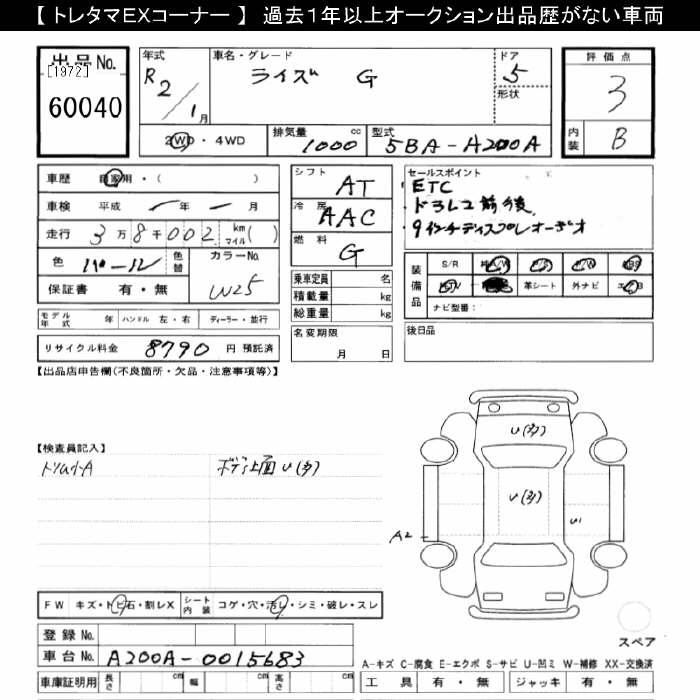 【 トレタマEXコーナー 】 過去１年以上オークション出品歴がない車両
出品 No.
[1972]
60040
年式
R2/1月
車名・グレード
ライズ G
ドア
5
形状
評価点
3
内装
B
2WD・4WD
排気量
1000 cc
型式
5BA-A200A
車歴 自家用・( )
車検 平成 ー年 ー月
走行 3万8千002 km マイル( )
色 パール 色替
カラーNo.
W25
保証書 有・無
モデル年式 年 ハンドル 左・右 ディーラー・並行
リサイクル料金 8790 円 預託済
シフト
AT
冷房
AAC
燃料
G
乗車定員 名
積載量 kg
総重量 kg
名変期限
月 日
セールスポイント
ETC
・ドラレコ前後
・9インチディスプレオーディオ
装備品
S/R 純A/W P/S P/W ABS
革シート 外ナビ エアB
ナビ型番:
後日品
【出品店申告欄(不良箇所・欠品・注意事項等)】
【検査員記入】
トリム小A
ボディ上面U(多)
U(多)
U(多)
U1
A2
FW キズ・トビ石・割レX
シート内装 コゲ・穴・汚レ・シミ・破レ・スレ
登録 No.
車台 No. A200A-0015683
車庫証明用 長さ cm 幅 cm 高さ cm
スペア
A-キズ C-腐食 E-エクボ S-サビ U-凹ミ W-補修 XX-交換済
工具 有・無 ジャッキ 有・無